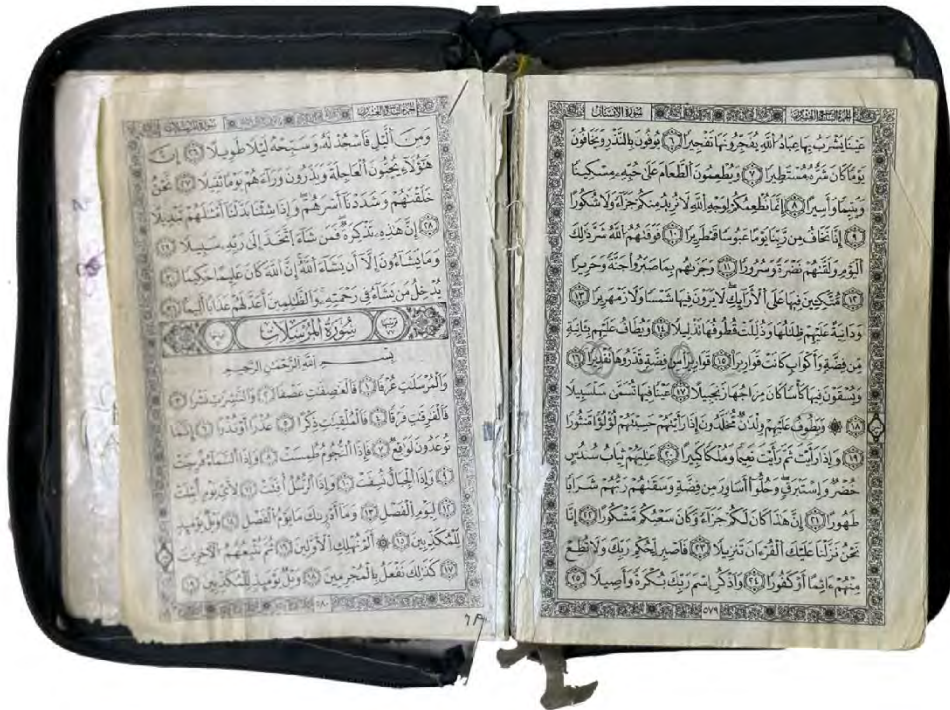 الجزء التاسع والعشرون سورة الإنسان
عَيْنًا يَشْرَبُ بِهَا عِبَادُ ٱللَّهِ يُفَجِّرُونَهَا تَفْجِيرًا ﴿٦﴾ يُوفُونَ بِٱلنَّذْرِ وَيَخَافُونَ
يَوْمًا كَانَ شَرُّهُۥ مُسْتَطِيرًا ﴿٧﴾ وَيُطْعِمُونَ ٱلطَّعَامَ عَلَىٰ حُبِّهِۦ مِسْكِينًا
وَيَتِيمًا وَأَسِيرًا ﴿٨﴾ إِنَّمَا نُطْعِمُكُمْ لِوَجْهِ ٱللَّهِ لَا نُرِيدُ مِنكُمْ جَزَآءً وَلَا شُكُورًا
﴿٩﴾ إِنَّا نَخَافُ مِن رَّبِّنَا يَوْمًا عَبُوسًا قَمْطَرِيرًا ﴿١٠﴾ فَوَقَىٰهُمُ ٱللَّهُ شَرَّ ذَٰلِكَ
ٱلْيَوْمِ وَلَقَّىٰهُمْ نَضْرَةً وَسُرُورًا ﴿١١﴾ وَجَزَىٰهُم بِمَا صَبَرُوا۟ جَنَّةً وَحَرِيرًا
﴿١٢﴾ مُّتَّكِـِٔينَ فِيهَا عَلَى ٱلْأَرَآئِكِ ۖ لَا يَرَوْنَ فِيهَا شَمْسًا وَلَا زَمْهَرِيرًا ﴿١٣﴾
وَدَانِيَةً عَلَيْهِمْ ظِلَٰلُهَا وَذُلِّلَتْ قُطُوفُهَا تَذْلِيلًا ﴿١٤﴾ وَيُطَافُ عَلَيْهِم بِـَٔانِيَةٍ
مِّن فِضَّةٍ وَأَكْوَابٍ كَانَتْ قَوَارِيرَا۠ ﴿١٥﴾ قَوَارِيرَا۟ مِن فِضَّةٍ قَدَّرُوهَا تَقْدِيرًا ﴿١٦﴾
وَيُسْقَوْنَ فِيهَا كَأْسًا كَانَ مِزَاجُهَا زَنجَبِيلًا ﴿١٧﴾ عَيْنًا فِيهَا تُسَمَّىٰ سَلْسَبِيلًا
﴿١٨﴾ ۞ وَيَطُوفُ عَلَيْهِمْ وِلْدَٰنٌ مُّخَلَّدُونَ إِذَا رَأَيْتَهُمْ حَسِبْتَهُمْ لُؤْلُؤًا مَّنثُورًا
﴿١٩﴾ وَإِذَا رَأَيْتَ ثَمَّ رَأَيْتَ نَعِيمًا وَمُلْكًا كَبِيرًا ﴿٢٠﴾ عَٰلِيَهُمْ ثِيَابُ سُندُسٍ
خُضْرٌ وَإِسْتَبْرَقٌ ۖ وَحُلُّوٓا۟ أَسَاوِرَ مِن فِضَّةٍ وَسَقَىٰهُمْ رَبُّهُمْ شَرَابًا
طَهُورًا ﴿٢١﴾ إِنَّ هَٰذَا كَانَ لَكُمْ جَزَآءً وَكَانَ سَعْيُكُم مَّشْكُورًا ﴿٢٢﴾ إِنَّا
نَحْنُ نَزَّلْنَا عَلَيْكَ ٱلْقُرْءَانَ تَنزِيلًا ﴿٢٣﴾ فَٱصْبِرْ لِحُكْمِ رَبِّكَ وَلَا تُطِعْ
مِنْهُمْ ءَاثِمًا أَوْ كَفُورًا ﴿٢٤﴾ وَٱذْكُرِ ٱسْمَ رَبِّكَ بُكْرَةً وَأَصِيلًا ﴿٢٥﴾
٥٧٩
الجزء التاسع والعشرون سورة المرسلات
وَمِنَ ٱلَّيْلِ فَٱسْجُدْ لَهُۥ وَسَبِّحْهُ لَيْلًا طَوِيلًا ﴿٢٦﴾ إِنَّ
هَٰٓؤُلَآءِ يُحِبُّونَ ٱلْعَاجِلَةَ وَيَذَرُونَ وَرَآءَهُمْ يَوْمًا ثَقِيلًا ﴿٢٧﴾ نَّحْنُ
خَلَقْنَٰهُمْ وَشَدَدْنَآ أَسْرَهُمْ ۖ وَإِذَا شِئْنَا بَدَّلْنَآ أَمْثَٰلَهُمْ تَبْدِيلًا
﴿٢٨﴾ إِنَّ هَٰذِهِۦ تَذْكِرَةٌ ۖ فَمَن شَآءَ ٱتَّخَذَ إِلَىٰ رَبِّهِۦ سَبِيلًا ﴿٢٩﴾
وَمَا تَشَآءُونَ إِلَّآ أَن يَشَآءَ ٱللَّهُ ۚ إِنَّ ٱللَّهَ كَانَ عَلِيمًا حَكِيمًا ﴿٣٠﴾
يُدْخِلُ مَن يَشَآءُ فِى رَحْمَتِهِۦ ۚ وَٱلظَّٰلِمِينَ أَعَدَّ لَهُمْ عَذَابًا أَلِيمًۢا ﴿٣١﴾
سُورَةُ المُرْسَلَاتِ
بِسْمِ ٱللَّهِ ٱلرَّحْمَٰنِ ٱلرَّحِيمِ
وَٱلْمُرْسَلَٰتِ عُرْفًا ﴿١﴾ فَٱلْعَٰصِفَٰتِ عَصْفًا ﴿٢﴾ وَٱلنَّٰشِرَٰتِ نَشْرًا ﴿٣﴾
فَٱلْفَٰرِقَٰتِ فَرْقًا ﴿٤﴾ فَٱلْمُلْقِيَٰتِ ذِكْرًا ﴿٥﴾ عُذْرًا أَوْ نُذْرًا ﴿٦﴾ إِنَّمَا
تُوعَدُونَ لَوَٰقِعٌ ﴿٧﴾ فَإِذَا ٱلنُّجُومُ طُمِسَتْ ﴿٨﴾ وَإِذَا ٱلسَّمَآءُ فُرِجَتْ
﴿٩﴾ وَإِذَا ٱلْجِبَالُ نُسِفَتْ ﴿١٠﴾ وَإِذَا ٱلرُّسُلُ أُقِّتَتْ ﴿١١﴾ لِأَىِّ يَوْمٍ أُجِّلَتْ
﴿١٢﴾ لِيَوْمِ ٱلْفَصْلِ ﴿١٣﴾ وَمَآ أَدْرَىٰكَ مَا يَوْمُ ٱلْفَصْلِ ﴿١٤﴾ وَيْلٌ يَوْمَئِذٍ
لِّلْمُكَذِّبِينَ ﴿١٥﴾ ۞ أَلَمْ نُهْلِكِ ٱلْأَوَّلِينَ ﴿١٦﴾ ثُمَّ نُتْبِعُهُمُ ٱلْءَاخِرِينَ
﴿١٧﴾ كَذَٰلِكَ نَفْعَلُ بِٱلْمُجْرِمِينَ ﴿١٨﴾ وَيْلٌ يَوْمَئِذٍ لِّلْمُكَذِّبِينَ ﴿١٩﴾
٥٨٠